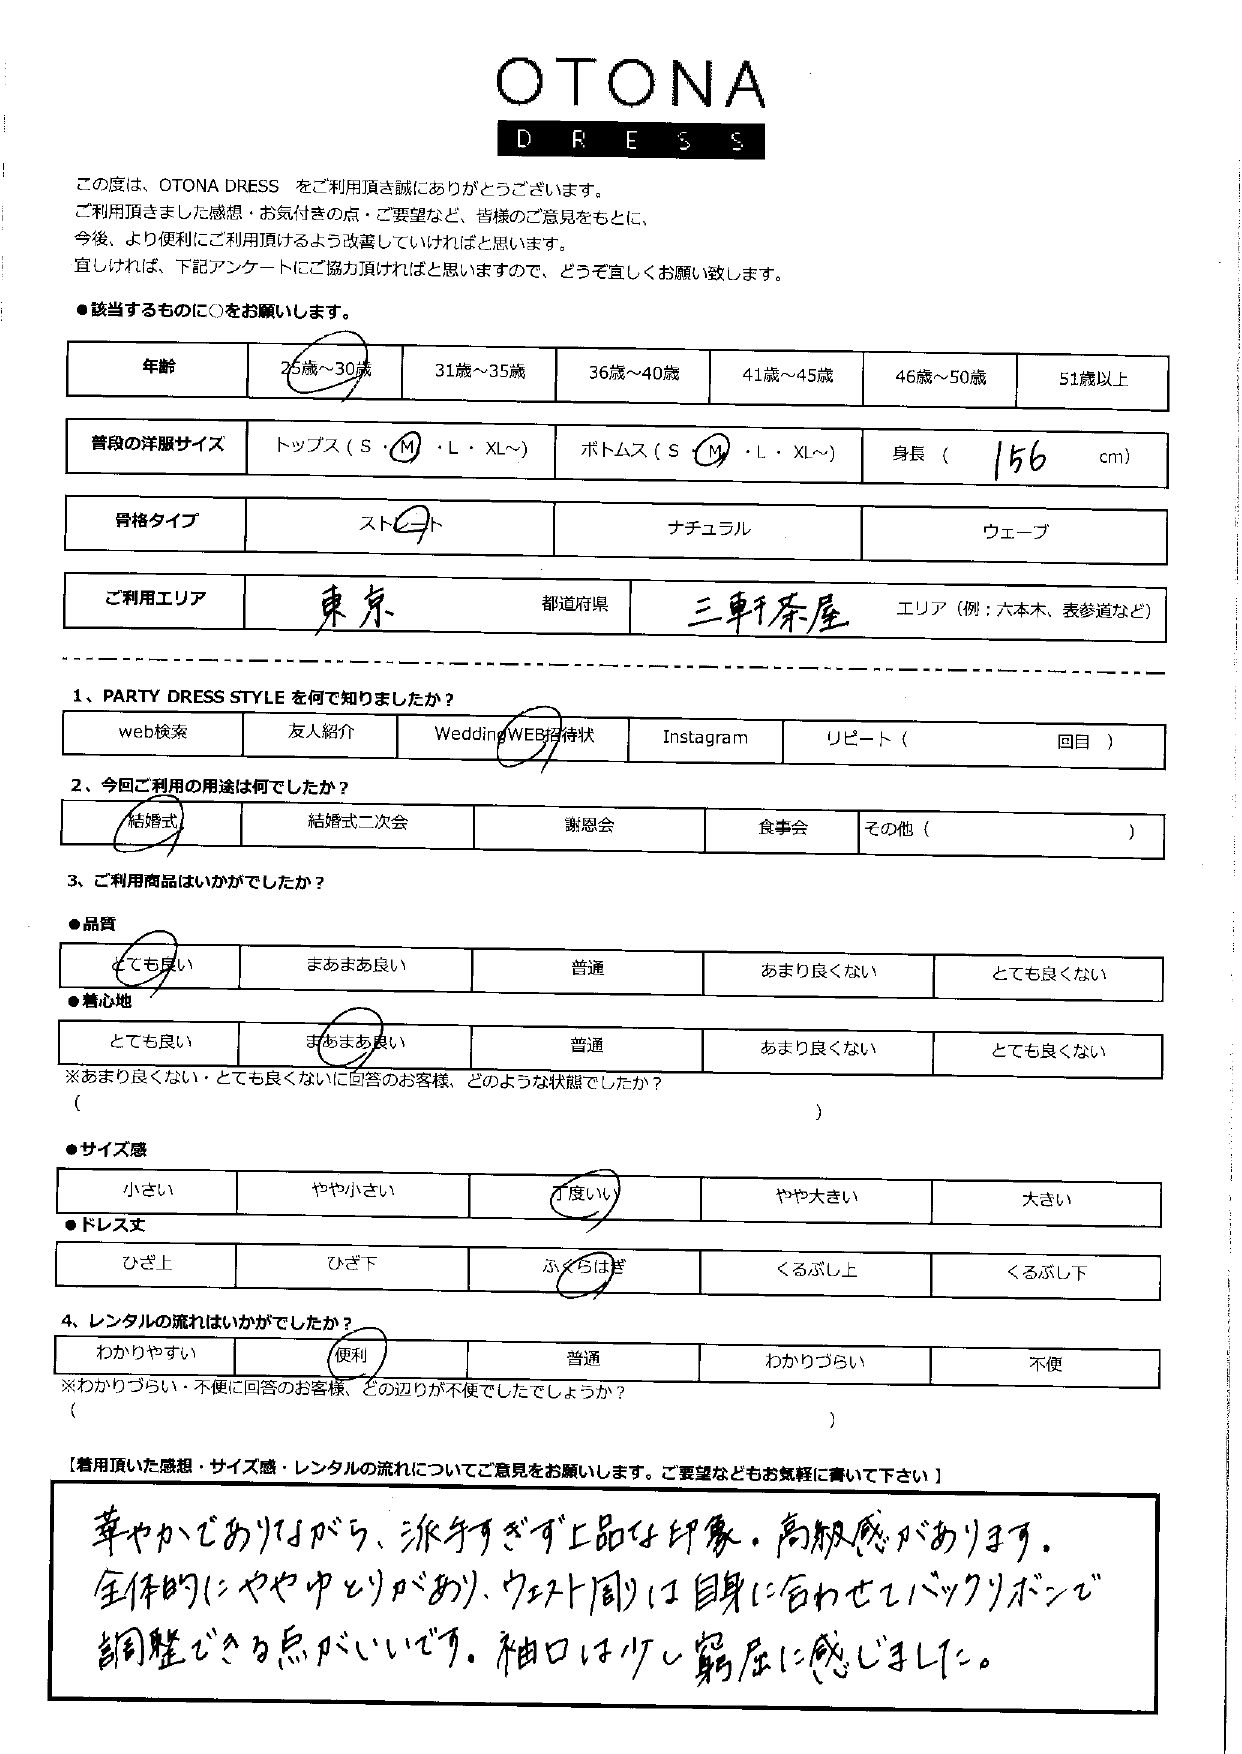 OTONA
DRESS
この度は、OTONA DRESS　をご利用頂き誠にありがとうございます。
ご利用頂きました感想・お気付きの点・ご要望など、皆様のご意見をもとに、
今後、より便利にご利用頂けるよう改善していければと思います。
宜しければ、下記アンケートにご協力頂ければと思いますので、どうぞ宜しくお願い致します。
●該当するものに○をお願いします。
年齢　25歳～30歳　31歳～35歳　36歳～40歳　41歳～45歳　46歳～50歳　51歳以上
普段の洋服サイズ　トップス（ S ・M ・L ・ XL～)　ボトムス（ S ・M ・L ・ XL～)　身長（ 156 cm）
骨格タイプ　ストレート　ナチュラル　ウェーブ
ご利用エリア　東京　都道府県　三軒茶屋　エリア（例：六本木、表参道など）
1、PARTY DRESS STYLE を何で知りましたか？
web検索　友人紹介　WeddingWEB招待状　Instagram　リピート（　回目　）
2、今回ご利用の用途は何でしたか？
結婚式　結婚式二次会　謝恩会　食事会　その他（　）
3、ご利用商品はいかがでしたか？
●品質
とても良い　まあまあ良い　普通　あまり良くない　とても良くない
●着心地
とても良い　まあまあ良い　普通　あまり良くない　とても良くない
※あまり良くない・とても良くないに回答のお客様、どのような状態でしたか？
（　）
●サイズ感
小さい　やや小さい　丁度いい　やや大きい　大きい
●ドレス丈
ひざ上　ひざ下　ふくらはぎ　くるぶし上　くるぶし下
4、レンタルの流れはいかがでしたか？
わかりやすい　便利　普通　わかりづらい　不便
※わかりづらい・不便に回答のお客様、どの辺りが不便でしたでしょうか？
（　）
【着用頂いた感想・サイズ感・レンタルの流れについてご意見をお願いします。ご要望などもお気軽に書いて下さい 】
華やかでありながら、派手すぎず上品な印象。高級感があります。
全体的にややゆとりがあり、ウエスト周りは自身に合わせてバックリボンで
調整できる点がいいです。袖口は少し窮屈に感じました。